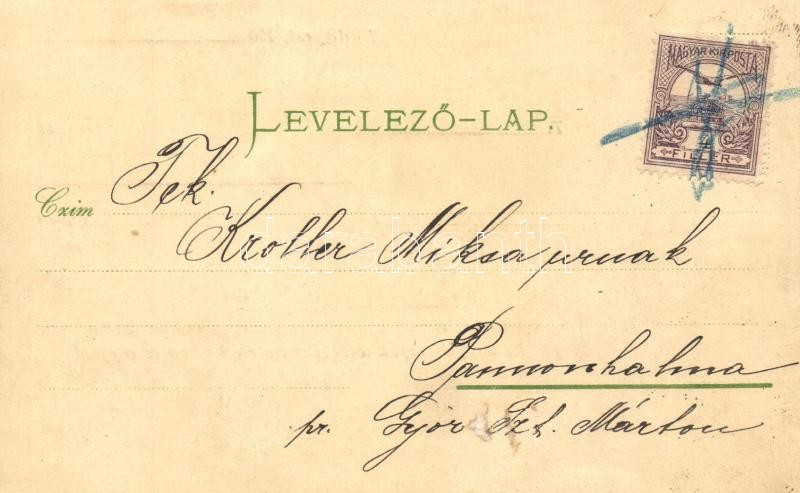 MAGYAR KIR. POSTA
FILLÉR
LEVELEZŐ-LAP.
Czim
Tek.
Kroller Miksa urnak
darabanth
Pannonhalma
pr. Győr Szt. Márton